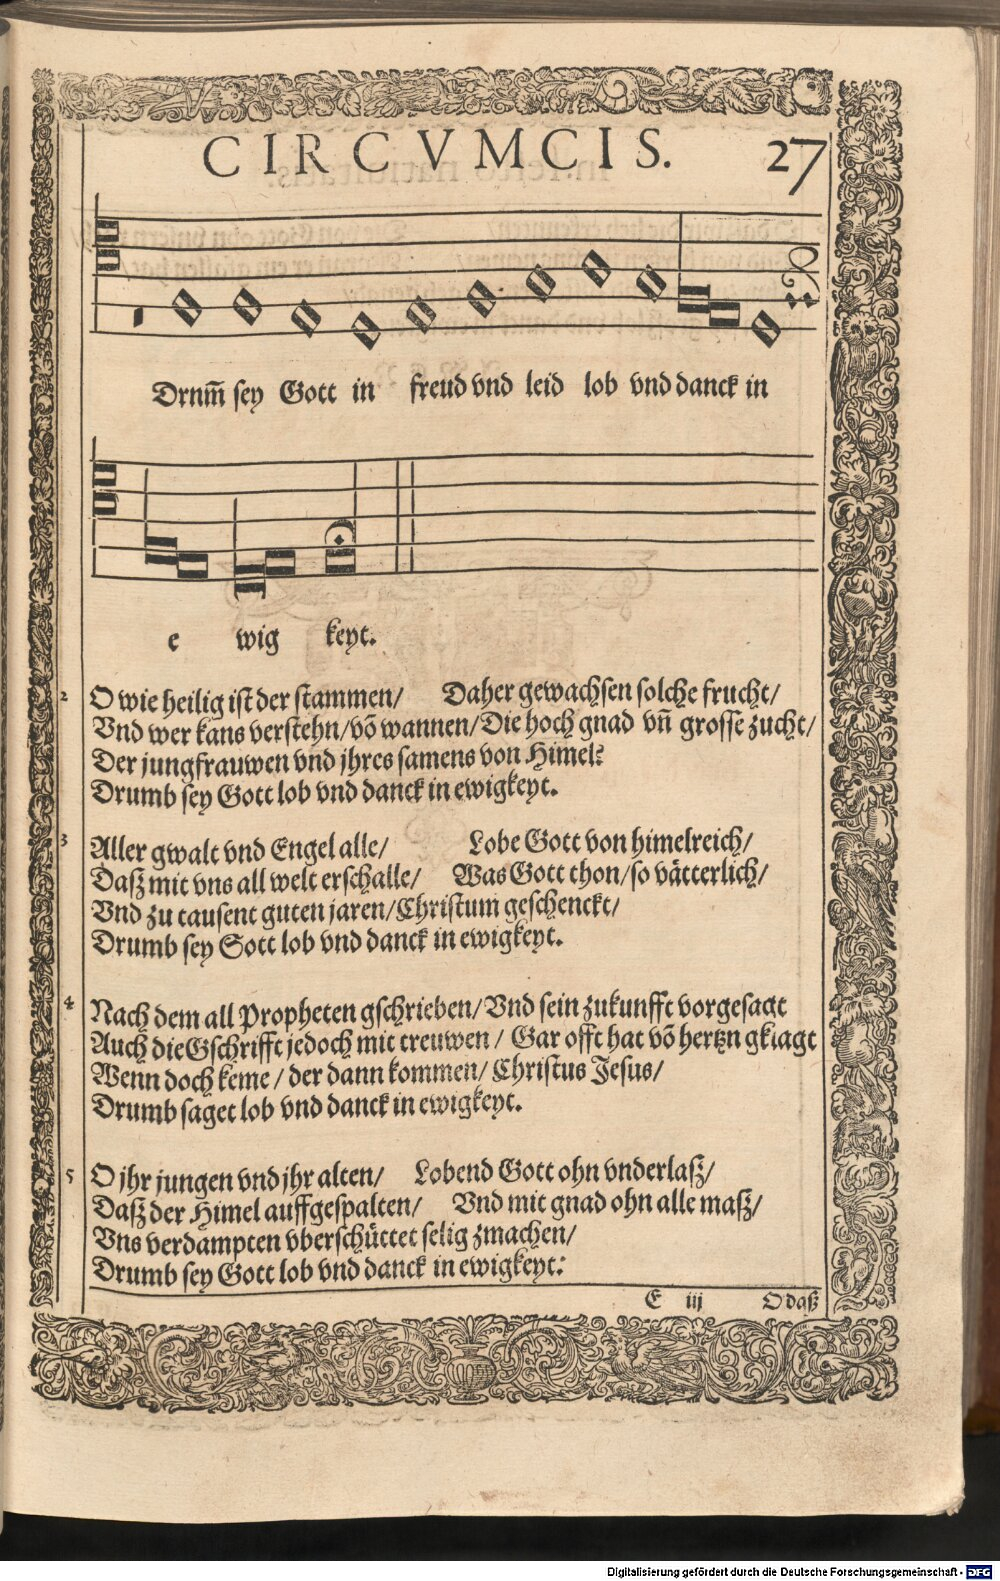 CIRCVMCIS. 27
Drum̃ sey Gott in freud vnd leid lob vnd danck in
e wig keyt.
2 O wie heilig ist der stammen/ Daher gewachsen solche frucht/
Vnd wer kans verstehn/võ wannen/Die hoch gnad vñ grosse zucht/
Der jungfrauwen vnd jhres samens von Himel?
Drumb sey Gott lob vnd danck in ewigkeyt.
3 Aller gwalt vnd Engel alle/ Lobe Gott von himelreich/
Dasz mit vns all welt erschalle/ Was Gott thon/so vätterlich/
Vnd zu tausent guten jaren/Christum geschenckt/
Drumb sey Gott lob vnd danck in ewigkeyt.
4 Nach dem all Propheten gschrieben/Vnd sein zukunfft vorgesagt
Auch die Gschrifft jedoch mit treuwen/ Gar offt hat võ hertzn gklagt
Wenn doch keme/der dann kommen/Christus Jesus/
Drumb saget lob vnd danck in ewigkeyt.
5 O jhr jungen vnd jhr alten/ Lobend Gott ohn vnderlasz/
Dasz der Himel auffgespalten/ Vnd mit gnad ohn alle masz/
Vns verdampten vberschüttet selig zmachen/
Drumb sey Gott lob vnd danck in ewigkeyt:
E iij O dasz
Digitalisierung gefördert durch die Deutsche Forschungsgemeinschaft - DFG